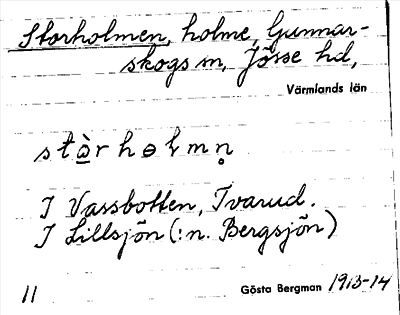 Storholmen, holme, Gunnar-
skogs sn, Jösse hd,
Värmlands län
stà̱rhɵɫmn̥
I Vassbotten, Tvarud.
I Lillsjön (:n. Bergsjön)
11 Gösta Bergman 1913-14